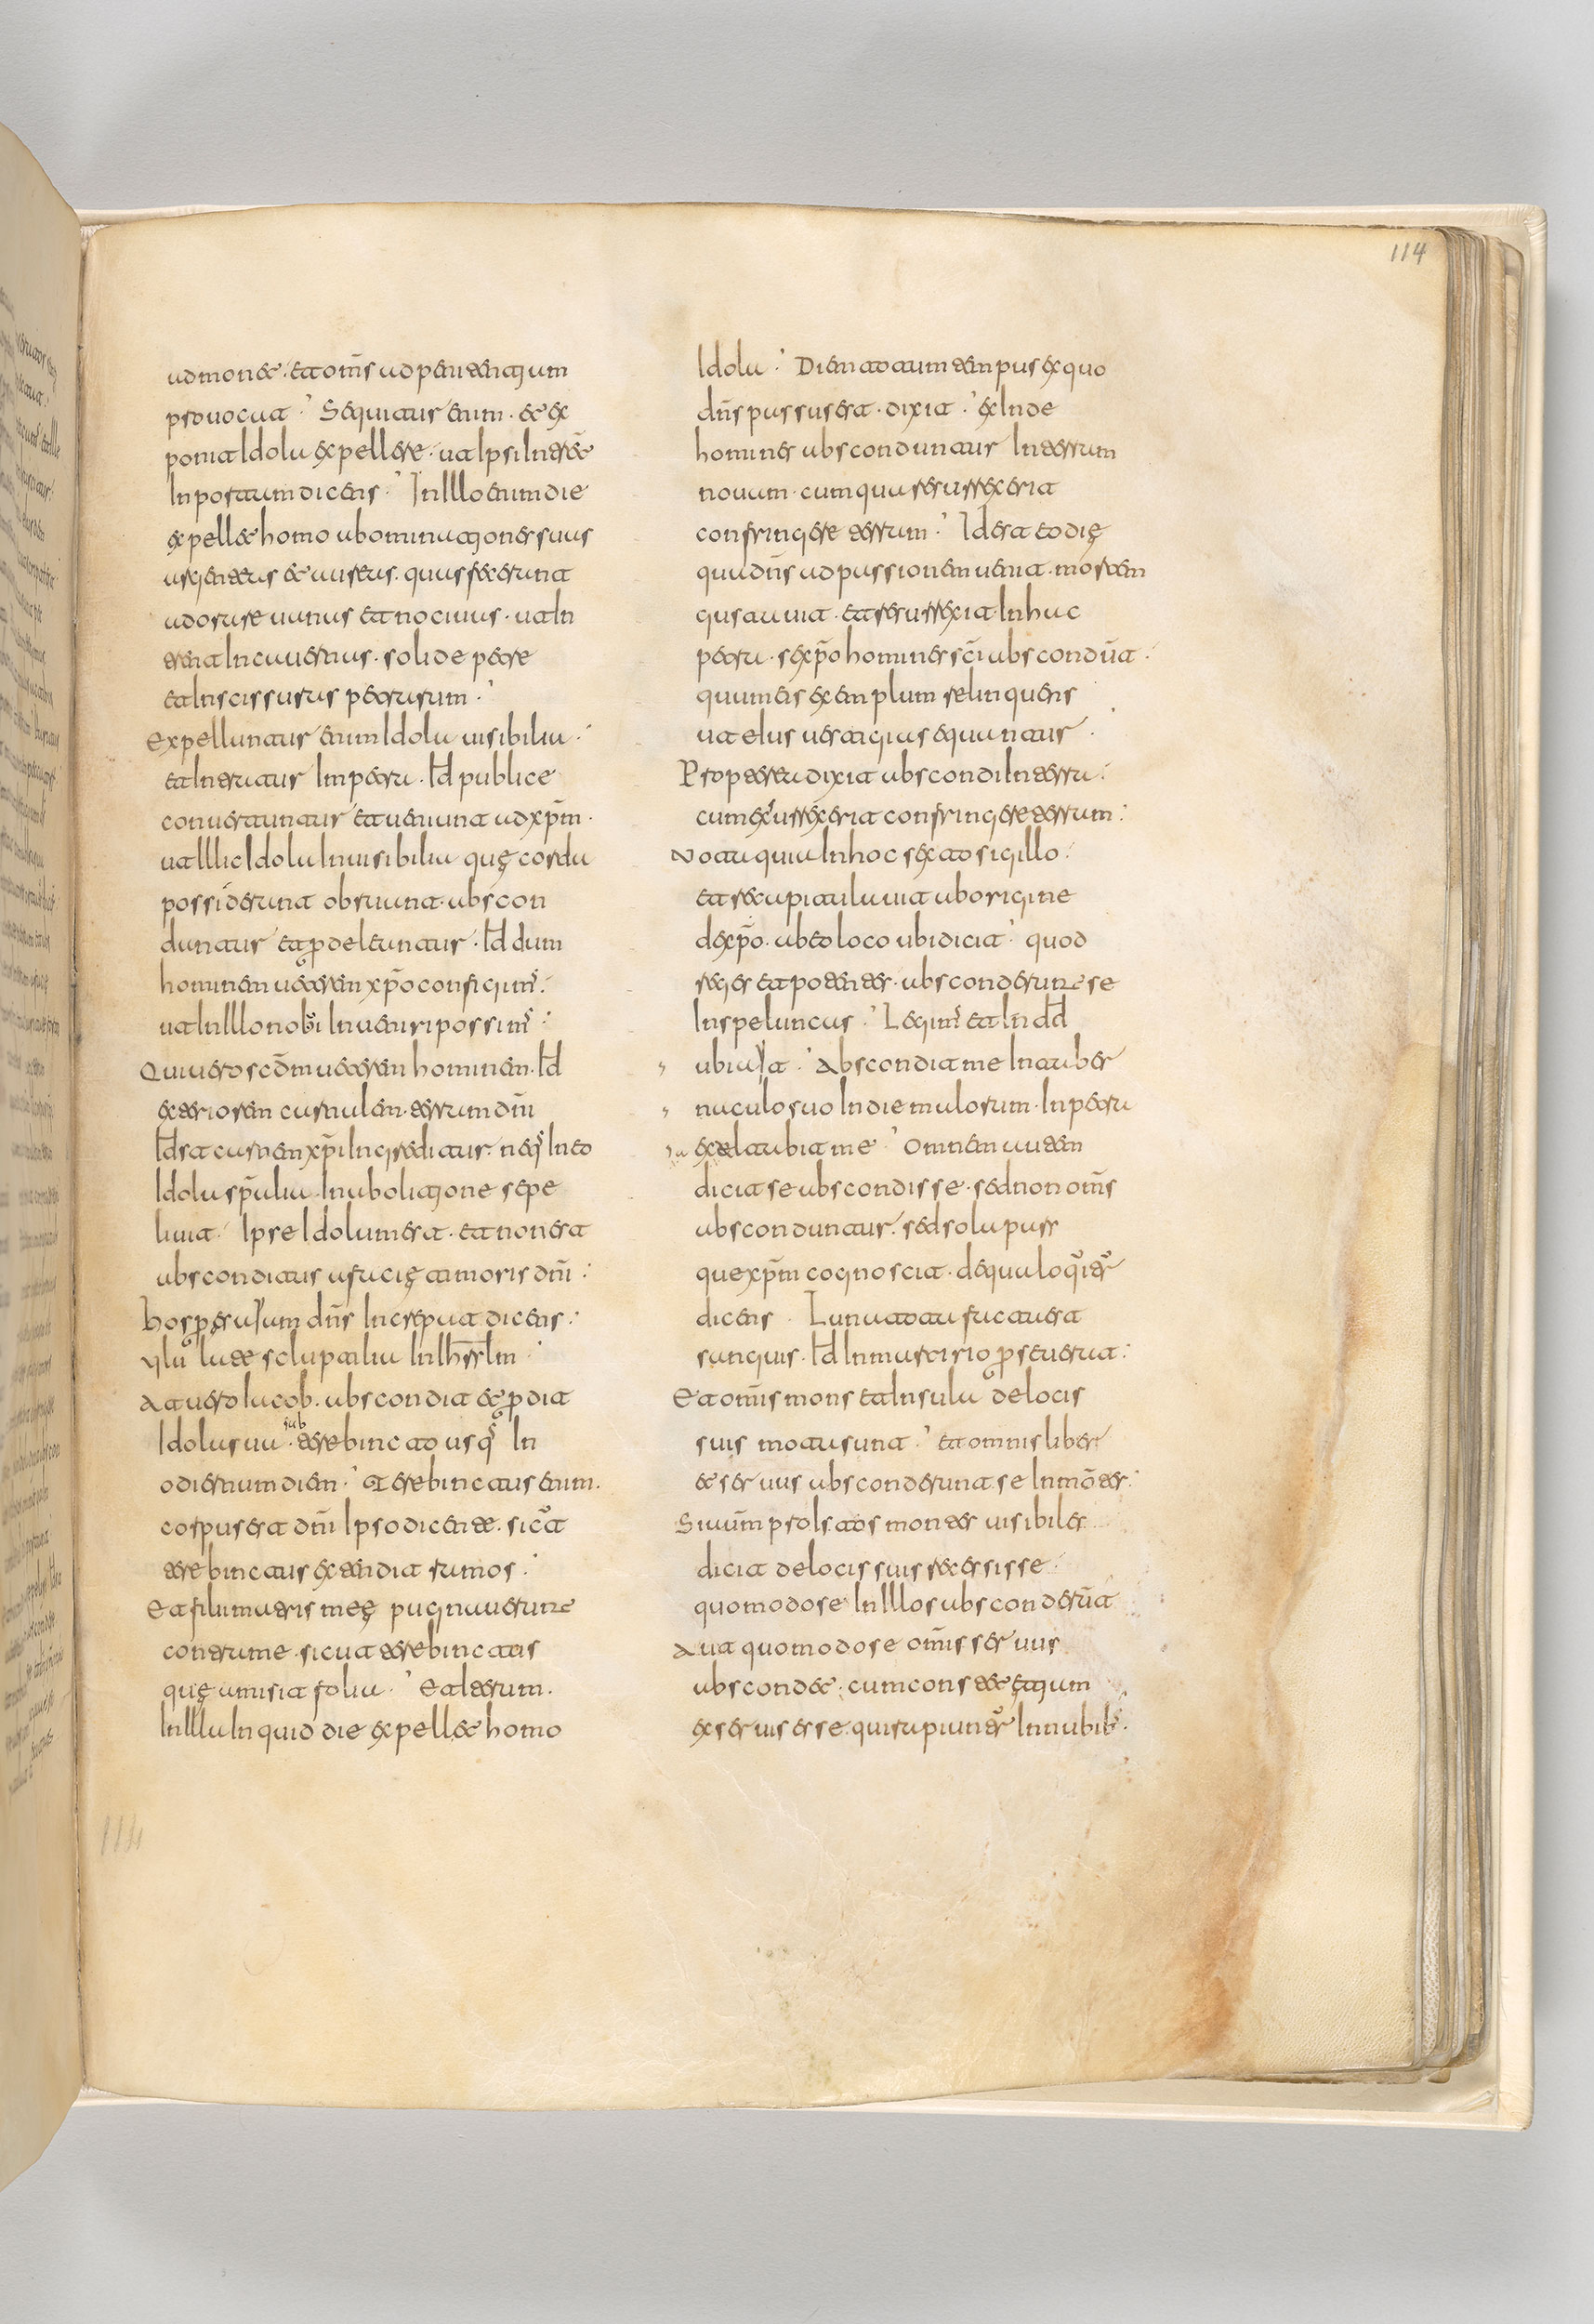 admonet. et om̄s ad penitentjam
prouocat. Sequitur enim. et ex
ponit Idola expellere. ut Ipsi Interēt
In postrum dicens. In Illo enim die
expellet homo abominatjones suas
argenteas et aureas. quas fecerunt
adorare uanas et nociuas. ut In
trent In cauernas. solide petre
et In scissuras petrarum.
Expelluntur enim Idola uisibilia.
et Intratur In petra. Id publice
conuertuntur et ueniunt ad xp̄m.
ut Illic Idola Inuisibilia quę corda
possiderunt obruunt. abscon
duntur et ꝑdeleuntur. Id dum
hominem ueterem xp̄o configim̓.
ut In Illo nobi Inueniri possim̓:
Qui uero scd̄m ueterem hominem. Id
exteriorem carnalem. terram dn̄i
Idst carnem xp̄i Ingreditur. neq̓ In eo
Idola sp̄alia. In abolitjone sepe
liuit. Ipse Idolum est. et non est
absconditus a facię timoris dn̄i:
hos ꝑ esaiam dn̄s Increpat dicens:
Ululate scluptilia In Ih̄rslm
At uero Iacob. abscondit et ꝑdit
Idola sua. sub terebinto usq̓ In
odiernum diem. Terebintus enim.
corpus est dn̄i Ipso dicente. sicut
terebintus extendit ramos:
Et filii matris meę pugnauerunt
contra me. sicut terebintus
quę amisit folia. Et iterum.
In Illa Inquid die expellet homo
114
Idola. Dien ad tum tempus ex quo
dn̄s passus est. dixit. exInde
homines absconduntur In terram
nouam. cum qua resurrexerit
confringere terram. Id est eo dię
qua dn̄s ad passionem uenit. mortem
gustauit. et resurrexit. In hac
petra. rex xp̄o homines sc̄i abscondūt.
quum eis exemplum relinquens
ut eIus uestigia sequuntur.
Propterea dixit abscondi In terra:
cum exsurrexerit confringere terram:
Nota quia In hoc sexto sigillo.
et recapitulauit ab origine
de xp̄o. ab eo loco ubi dicit. quod
reges et potentes. absconderunt se
In speluncas. Legim̓ et In dd
ubi ait. Abscondit me In taber
naculo suo In die malorum. In petra
exaltabit me. Omnem autem
dicit se abscondisse. sed non om̄s
absconduntur. sed sola pars
que xp̄m cognoscit. de qua loquitur
dicens. Luna tota facta est
sanguis. Id In martirio ꝑseuerat:
Et omnis mons et Insula de locis
suis motu sunt. et omnis liber
et seruus absconderunt se In mōtes:
Si uūm pro Istos montes uisibiles
dicit de locis suis recessisse.
quomodo se In Illos absconderūt
Aut quomodo se om̄is seruus
abscondet. cum constet etjam
ex seruis esse. qui rapiuntur In nubib̓.